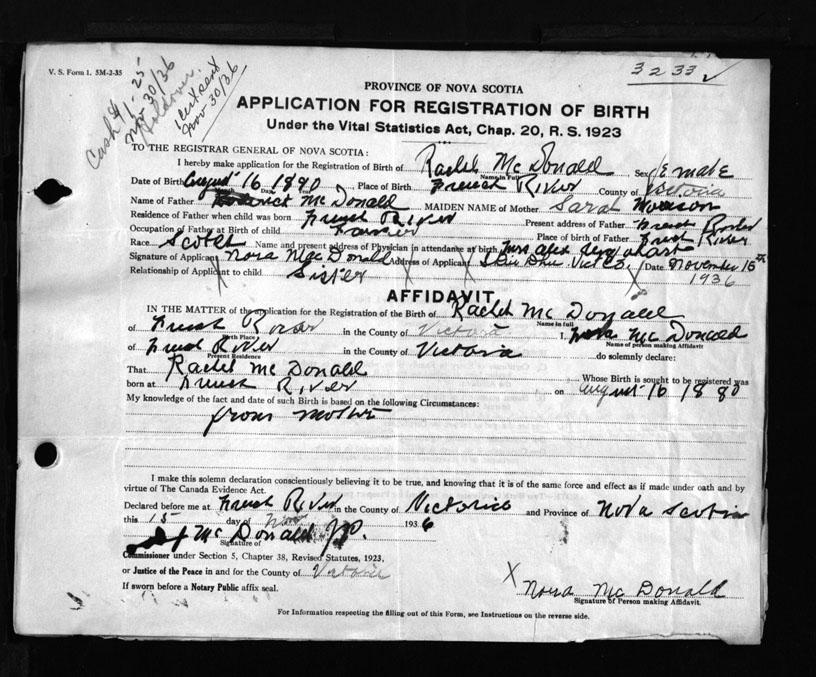 V. S. Form 1. 5M-2-35
3233
Nov 30/36
Nov 30/36
PROVINCE OF NOVA SCOTIA
APPLICATION FOR REGISTRATION OF BIRTH
Under the Vital Statistics Act, Chap. 20, R. S. 1923
TO THE REGISTRAR GENERAL OF NOVA SCOTIA:
I hereby make application for the Registration of Birth of Rachel McDonald Sex Female
Name in Full
Date of Birth August 16 1890, Place of Birth French River County of Victoria
Name of Father McDonald MAIDEN NAME of Mother Sarah
Residence of Father when child was born French River Present address of Father French
Occupation of Father at Birth of child Farmer Place of birth of Father French River
Race Scotch Name and present address of Physician in attendance at birth Mrs Alex Urquhart
Signature of Applicant Nora MacDonald Address of Applicant Skir Dhu Vict Co. Date November 15th
Relationship of Applicant to child Sister 1936
AFFIDAVIT
IN THE MATTER of the application for the Registration of the Birth of Rachel McDonald
Name in full
of French River in the County of Victoria I, Nora McDonald
Birth Place Name of person making Affidavit
of French River in the County of Victoria do solemnly declare:
Present Residence
That Rachel McDonald Whose Birth is sought to be registered was
born at French River on August 16 1880
My knowledge of the fact and date of such Birth is based on the following Circumstances:
from Mother
I make this solemn declaration conscientiously believing it to be true, and knowing that it is of the same force and effect as if made under oath and by
virtue of The Canada Evidence Act.
Declared before me at French River in the County of Victoria and Province of Nova Scotia
this 15 day of Nov 1936
McDonald J.P.
Signature of
Commissioner under Section 5, Chapter 38, Revised Statutes, 1923,
or Justice of the Peace in and for the County of Victoria
If sworn before a Notary Public affix seal.
X Nora McDonald
Signature of Person making Affidavit.
For Information respecting the filling out of this Form, see Instructions on the reverse side.